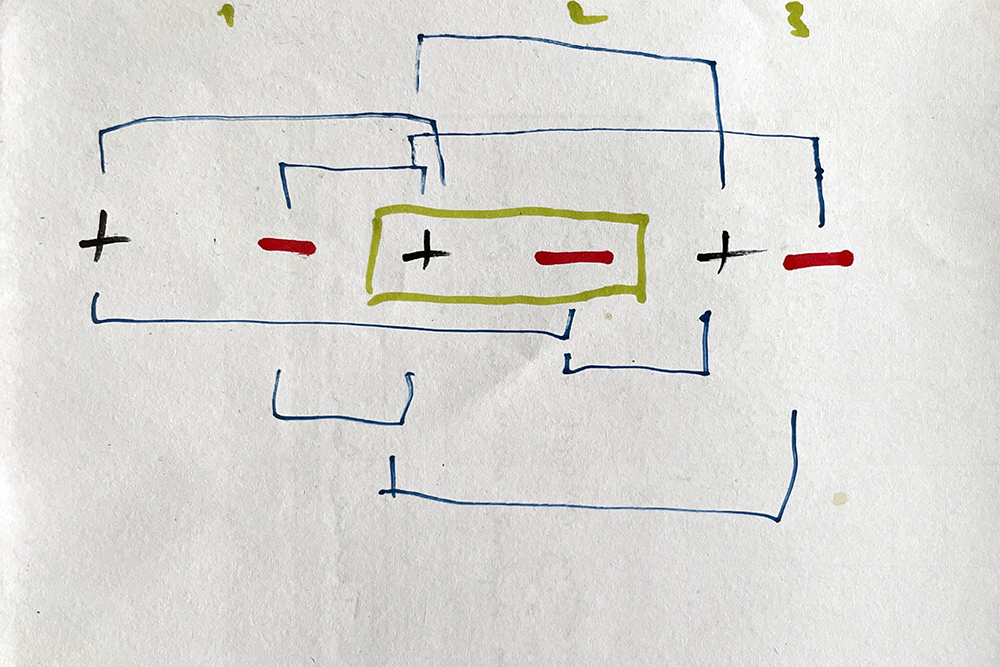 1 2 3
+ - + - + -